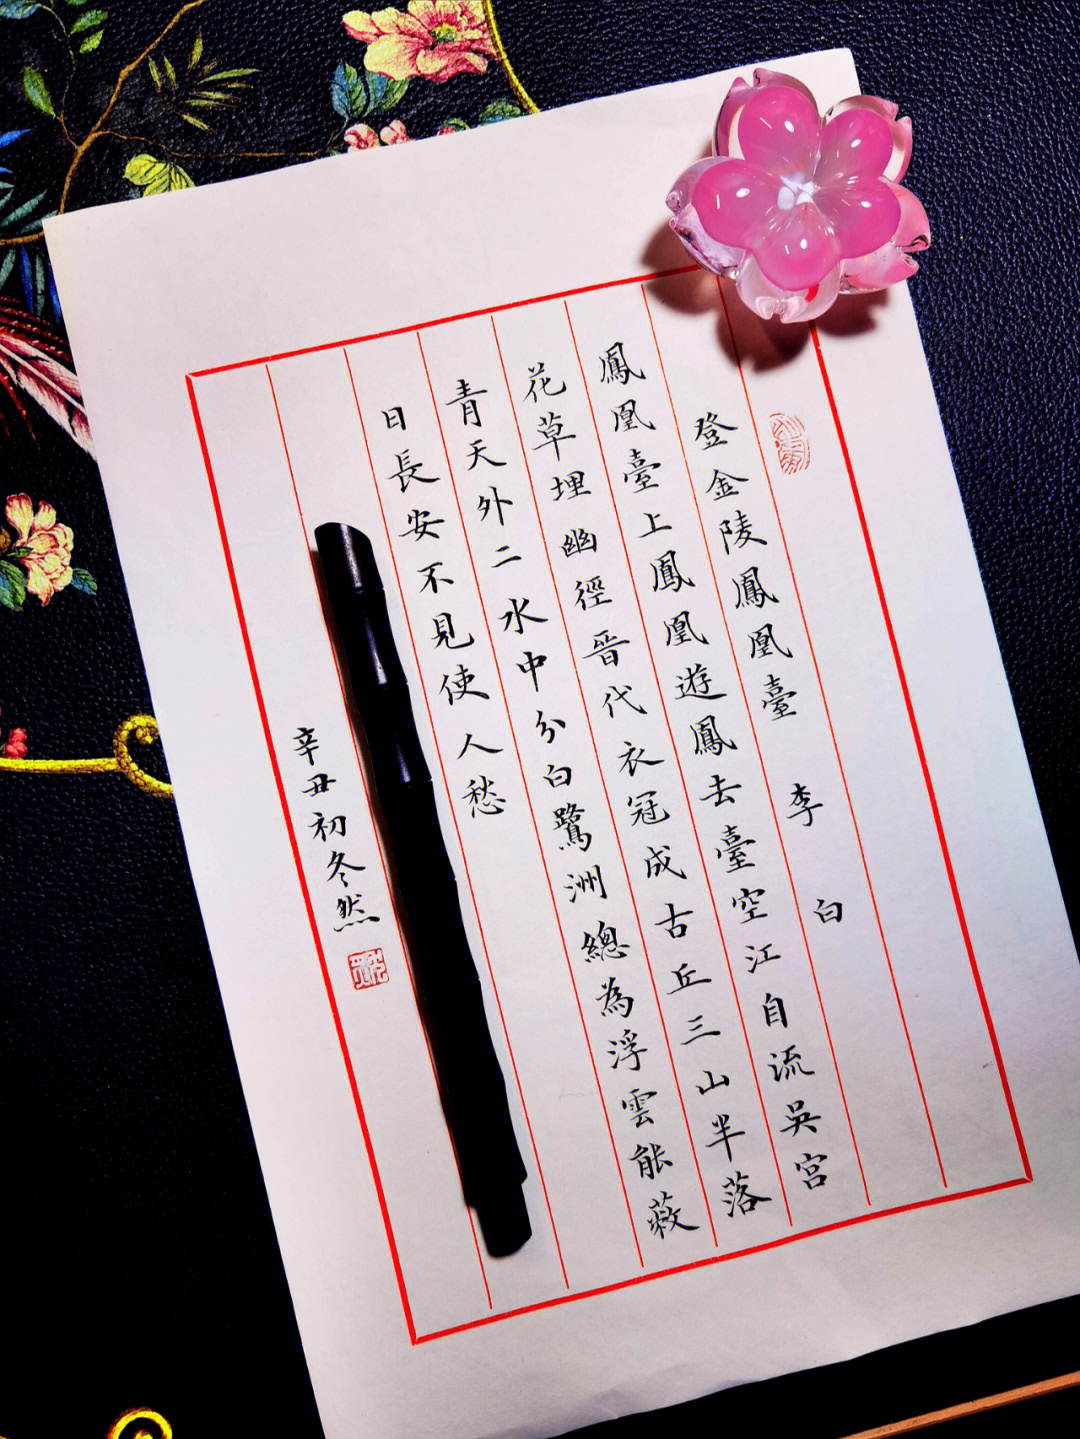 登金陵鳳凰臺 李白
鳳凰臺上鳳凰遊鳳去臺空江自流吳宮
花草埋幽徑晉代衣冠成古丘三山半落
青天外二水中分白鷺洲總為浮雲能蔽
日長安不見使人愁
辛丑初冬然